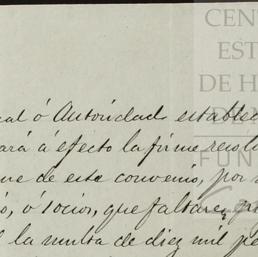 CEN
EST
DE H
D
FUN
al ó Autoridad establec
ará á efecto la firme resolu
me de este convenio, por
ó, ó socios, que faltare,
la multa de diez mil pe